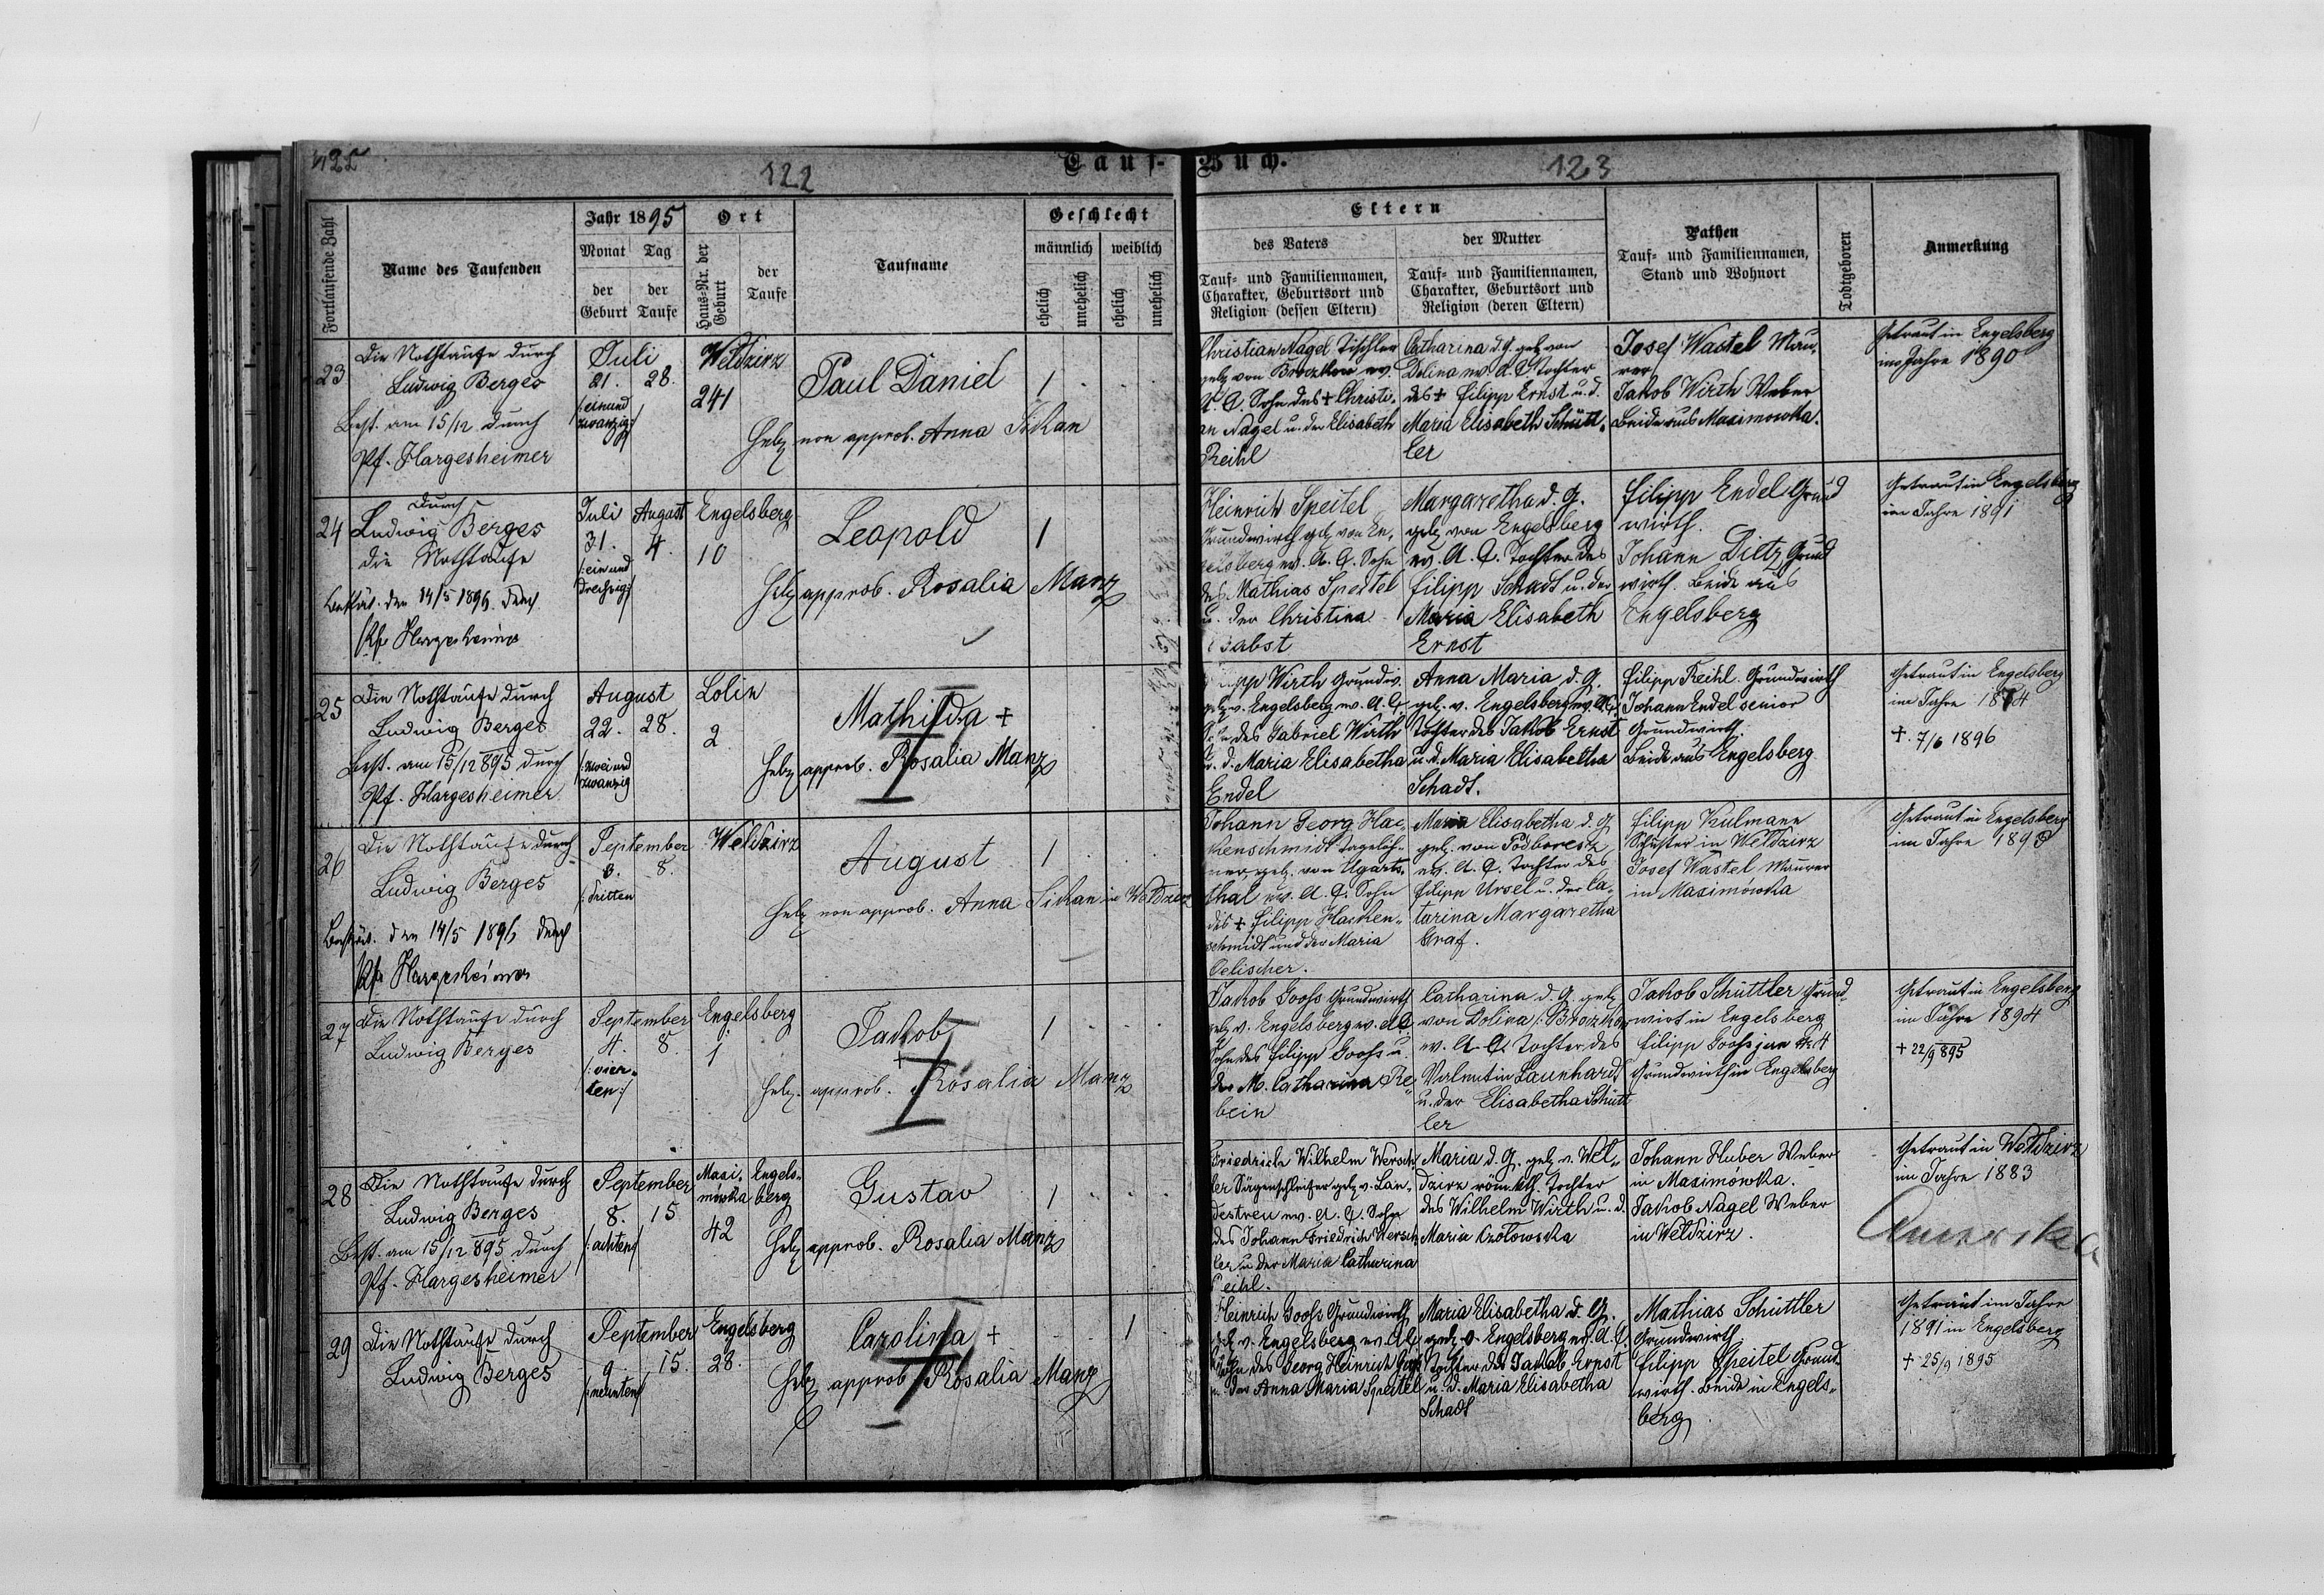 122
Tauf-
Buch.
123
Fortlaufende Zahl
Name des Taufenden
Jahr 1895
Monat
Tag
der Geburt
der Taufe
Ort
Haus-Nr. der Geburt
der Taufe
Taufname
Geschlecht
männlich
weiblich
ehelich
unehelich
ehelich
unehelich
Eltern
des Vaters
Tauf- und Familiennamen,
Charakter, Geburtsort und
Religion (dessen Eltern)
der Mutter
Tauf- und Familiennamen,
Charakter, Geburtsort und
Religion (deren Eltern)
Pathen
Tauf- und Familiennamen,
Stand und Wohnort
Todtgeboren
Anmerkung
23
Die Nothtaufe durch
Ludwig Berges
Best. am 15/12 durch
Pf. Hargesheimer
Juli
21. 28.
/:einund
zwanzig:/
Weldzirz
241
Paul Daniel
1
Heb. non approb. Anna Sikan
Christian Nagel Tischler
geb. von Broczkow ev.
A. C. Sohn des + Christi-
an Nagel u. der Elisabeth
Reihl
Catharina d. G. geb. von
Dolina ev. A. C. Tochter
des + Filipp Ernst u. d.
Maria Elisabeth Schütt-
ler
Josef Wastel Mau-
rer
Jakob Wirth Weber
Beide aus Maximowka.
Getraut in Engelsberg
im Jahre 1890
24
durch
Ludwig Berges
die Nothtaufe
Bestät. den 14/5 1896 durch
Pfr Hargesheimer
Juli August
31. 4.
/:ein und
dreißig:/
Engelsberg
10
Leopold
1
Heb. approb. Rosalia Manz
Heinrich Speitel
Grundwirth geb. von En-
gelsberg ev. A. C. Sohn
des Mathias Speitel
u. der Christina
Pabst
Margaretha d. G.
geb. von Engelsberg
ev. A. C. Tochter des
Filipp Schadt u. der
Maria Elisabeth
Ernst
Filipp Endel Grund
wirth.
Johann Dietz Grund
wirth. Beide aus
Engelsberg
Getraut in Engelsberg
im Jahre 1891
25
Die Nothtaufe durch
Ludwig Berges
Best. am 15/12 895 durch
Pf. Hargesheimer
August
22. 28.
/:zwei und
zwanzig
Lolin
2
Mathilda +
Heb. approb. Rosalia Manz
Wirth Grundw.
geb. v. Engelsberg ev. A. C.
Sohn des Gabriel Wirth
u. d. Maria Elisabetha
Endel
Anna Maria d. G.
geb. v. Engelsberg ev. A. C.
Tochter des Jakob Ernst
u. d. Maria Elisabetha
Schadt.
Filipp Reihl Grundwirth
Johann Endel senior
Grundwirth.
Beide aus Engelsberg
Getraut in Engelsberg
im Jahre
+ 7/6 1896
26
Die Nothtaufe durch
Ludwig Berges
Bestät. den 14/5 1896 durch
Pfr Hargesheimer
September
3. 8.
/:dritten
Weldzirz
August
1
Heb. non approb. Anna Sikan in Weldzirz
Johann Georg Hac-
kenschmidt Tagelöh-
ner geb. von Ugarts-
thal ev. A. C. Sohn
des + Filipp Hacken-
schmidt und der Maria
Oelischer.
Maria Elisabetha d. G.
geb. von Podborestz
ev. A. C. Tochter des
Filipp Ursel u. der Ca-
tarina Margaretha
Graf.
Filipp Kulmann
Schuster in Weldzirz
Josef Wastel Maurer
in Maximówka
Getraut in Engelsberg
im Jahre
27
Die Nothtaufe durch
Ludwig Berges
September
4. 8.
/:vier-
ten:/
Engelsberg
1
Jakob
+
1
Heb. approb. Rosalia Manz
Jakob Gooss Grundwirth
geb. v. Engelsberg ev. A. C.
Sohn des Filipp Gooss u.
der M. Catharina Re-
bein
Catharina d. G. geb.
von Dolina /:Broczkow
ev. A. C. Tochter des
Valentin Launhardt
u. der Elisabetha Schütt
ler
Jakob Schüttler Grund-
wirt in Engelsberg
Filipp Gooss jun № 4
Grundwirth in Engelsberg
Getraut in Engelsberg
im Jahre 1894
+ 22/9 895
28
Die Nothtaufe durch
Ludwig Berges
Best. am 15/12 895 durch
Pf. Hargesheimer
September
8. 15
/:achten:/
Maxi-
mówka
42
Engels-
berg
Gustav
1
Heb. approb. Rosalia Manz
Friedrich Wilhelm Wersch
ler Sägenschleifer geb. v. Lan-
destreu ev. A. C. Sohn
des Johann Friedrich Wersch
ler u. der Maria Catharina
Reihl.
Maria d. G. geb. v. Wel-
dzirz röm. kth. Tochter
des Wilhelm Wirth u. d.
Maria Czotowska
Johann Huber Weber
in Maximówka.
Jakob Nagel Weber
in Weldzirz.
Getraut in Weldzirz
im Jahre 1883
Amerika
29
Die Nothtaufe durch
Ludwig Berges
September
9. 15.
/:neunten:/
Engelsberg
28.
Carolina +
1
Heb. approb. Rosalia Manz
Heinrich Gooss Grundwirth
geb. v. Engelsberg ev. A. C.
Sohn des Georg Heinrich Gooss
u. der Anna Maria Speitel
Maria Elisabetha d. G.
geb. v. Engelsberg ev. A. C.
Tochter des Jakob Ernst
u. d. Maria Elisabetha
Schadt
Mathias Schüttler
Grundwirth
Filipp Speitel Grund-
wirth. Beide in Engels-
berg
Getraut im Jahre
1891 in Engelsberg
+ 25/9 1895